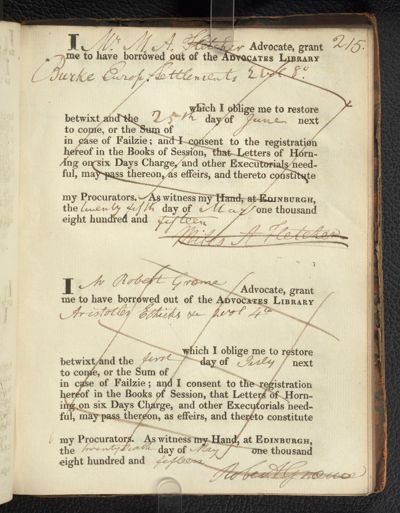 215.
I Mr M. A. Fletcher Advocate, grant
me to have borrowed out of the ADVOCATES LIBRARY
Burke Europ: Settlements 2 vol 8°
which I oblige me to restore
betwixt and the 25th day of June next
to come, or the Sum of
in case of Failzie; and I consent to the registration
hereof in the Books of Session, that Letters of Horn-
ing on six Days Charge, and other Executorials need-
ful, may pass thereon, as effeirs, and thereto constitute
my Procurators. As witness my Hand, at EDINBURGH,
the twenty fifth day of May one thousand
eight hundred and fifteen
Miles A Fletcher
I Mr Robert Graeme Advocate, grant
me to have borrowed out of the ADVOCATES LIBRARY
Aristotles Ethicks &c vol 4to
which I oblige me to restore
betwixt and the first day of July next
to come, or the Sum of
in case of Failzie; and I consent to the registration
hereof in the Books of Session, that Letters of Horn-
ing on six Days Charge, and other Executorials need-
ful, may pass thereon, as effeirs, and thereto constitute
my Procurators. As witness my Hand, at EDINBURGH,
the day of May one thousand
eight hundred and fifteen
Robert Graeme